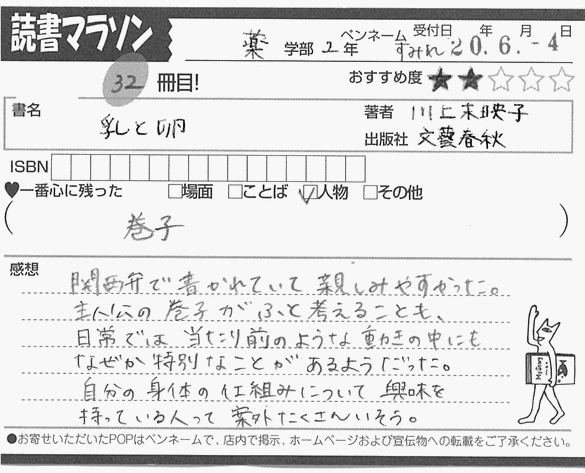 読書マラソン
薬 学部 2年 ペンネーム すみれ 受付日 年 月 日
20.6.-4
32 冊目! おすすめ度 ★★☆☆☆
書名 乳と卵
著者 川上未映子
出版社 文藝春秋
ISBN
♥一番心に残った □場面 □ことば ☑人物 □その他
( 巻子 )
感想
関西弁で書かれていて親しみやすかった。
主人公の巻子がふと考えることも、
日常では当たり前のような動きの中にも
なぜか特別なことがあるようだった。
自分の身体の仕組みについて興味を
持っている人って案外たくさんいそう。
●お寄せいただいたPOPはペンネームで、店内で掲示、ホームページおよび宣伝物への転載をご了承ください。